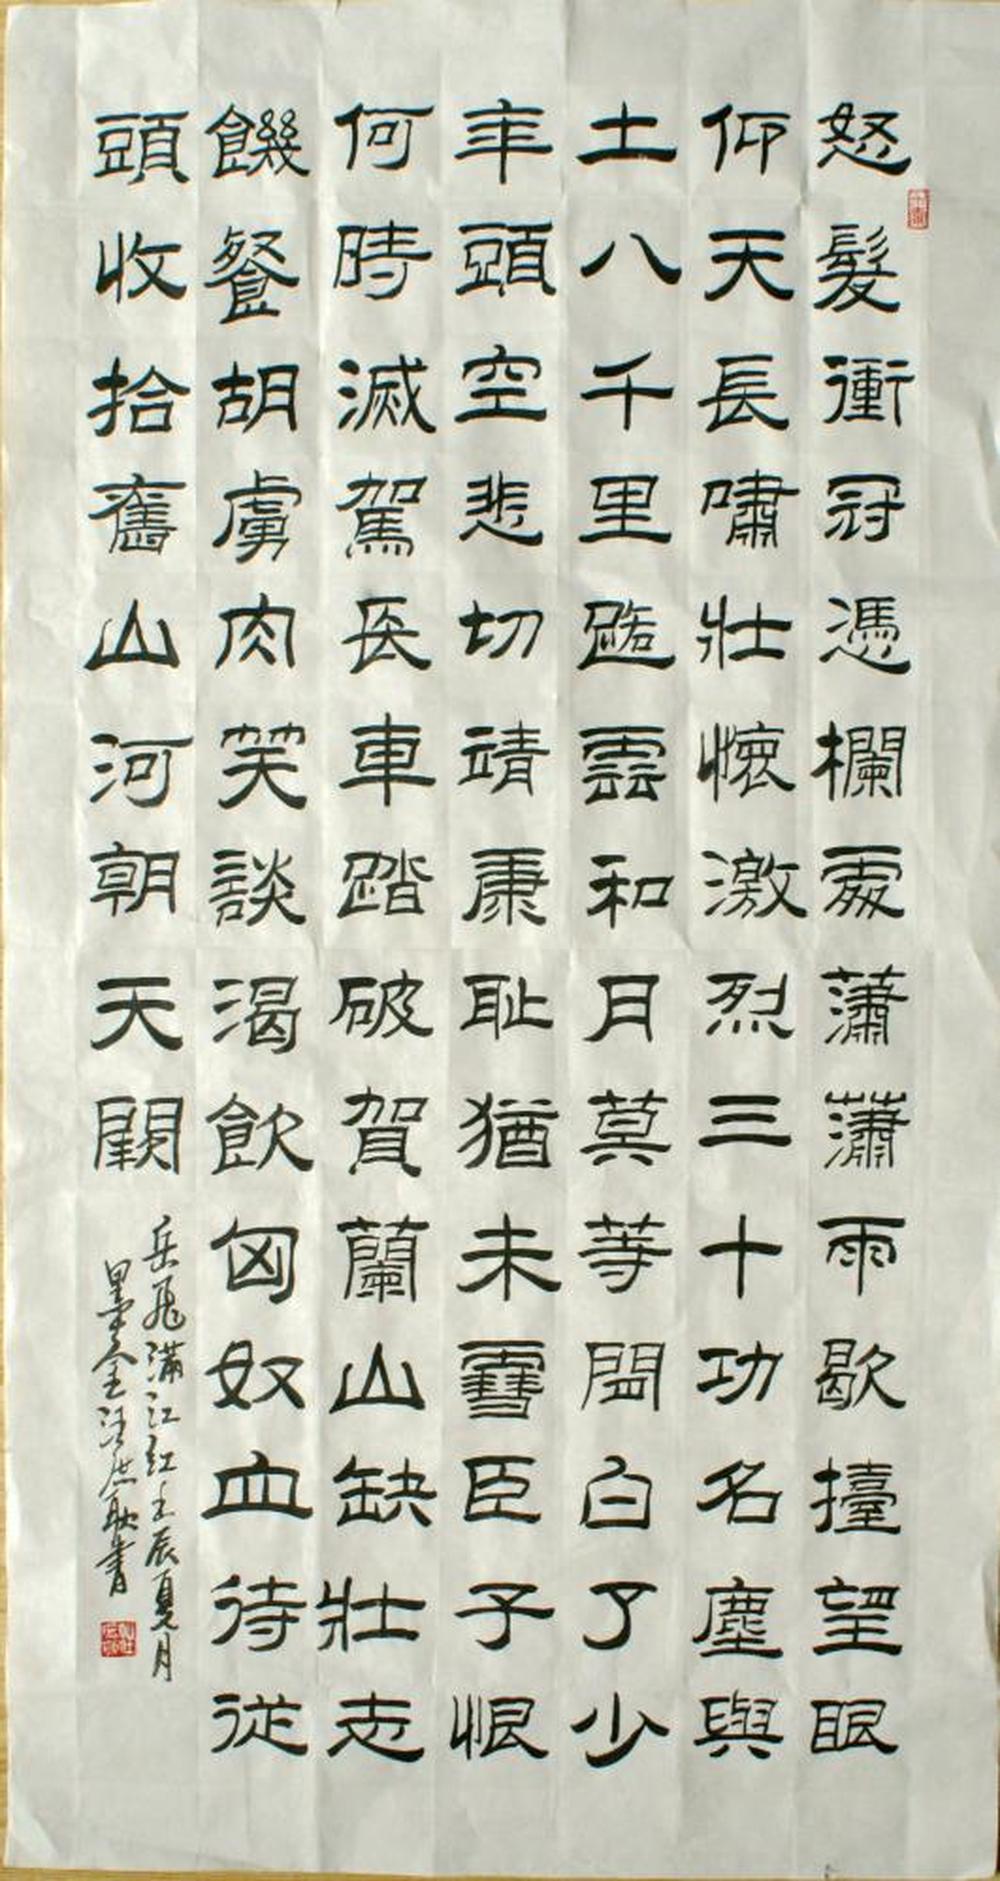 怒髮衝冠憑欄處瀟瀟雨歇擡望眼
仰天長嘯壯懷激烈三十功名塵與
土八千里路雲和月莫等閒白了少
年頭空悲切靖康耻猶未雪臣子恨
何時滅駕長車踏破賀蘭山缺壯志
饑餐胡虜肉笑談渴飲匈奴血待從
頭收拾舊山河朝天闕
岳飛滿江紅壬辰夏月
墨金汪庶耿書